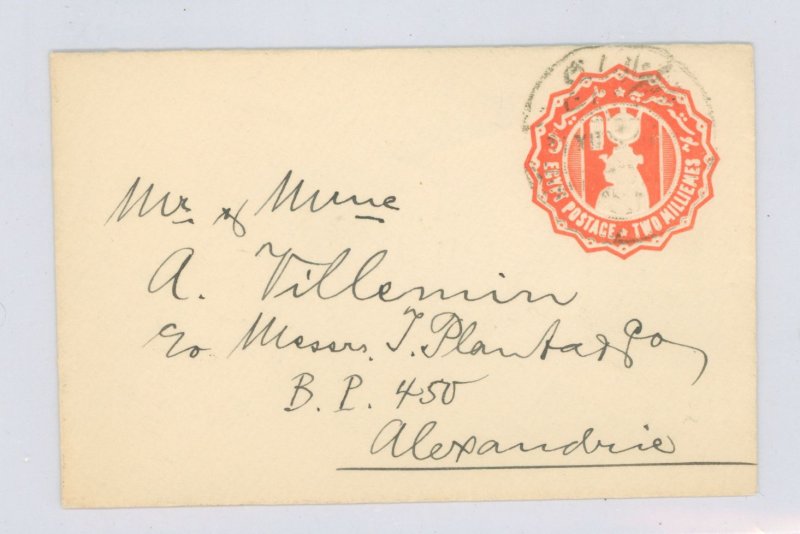 EGYPT POSTAGE ★ TWO MILLIEMES
Mr & Mme
A. Villemin
c/o Messrs. J. Planta & Co
B. P. 450
Alexandrie